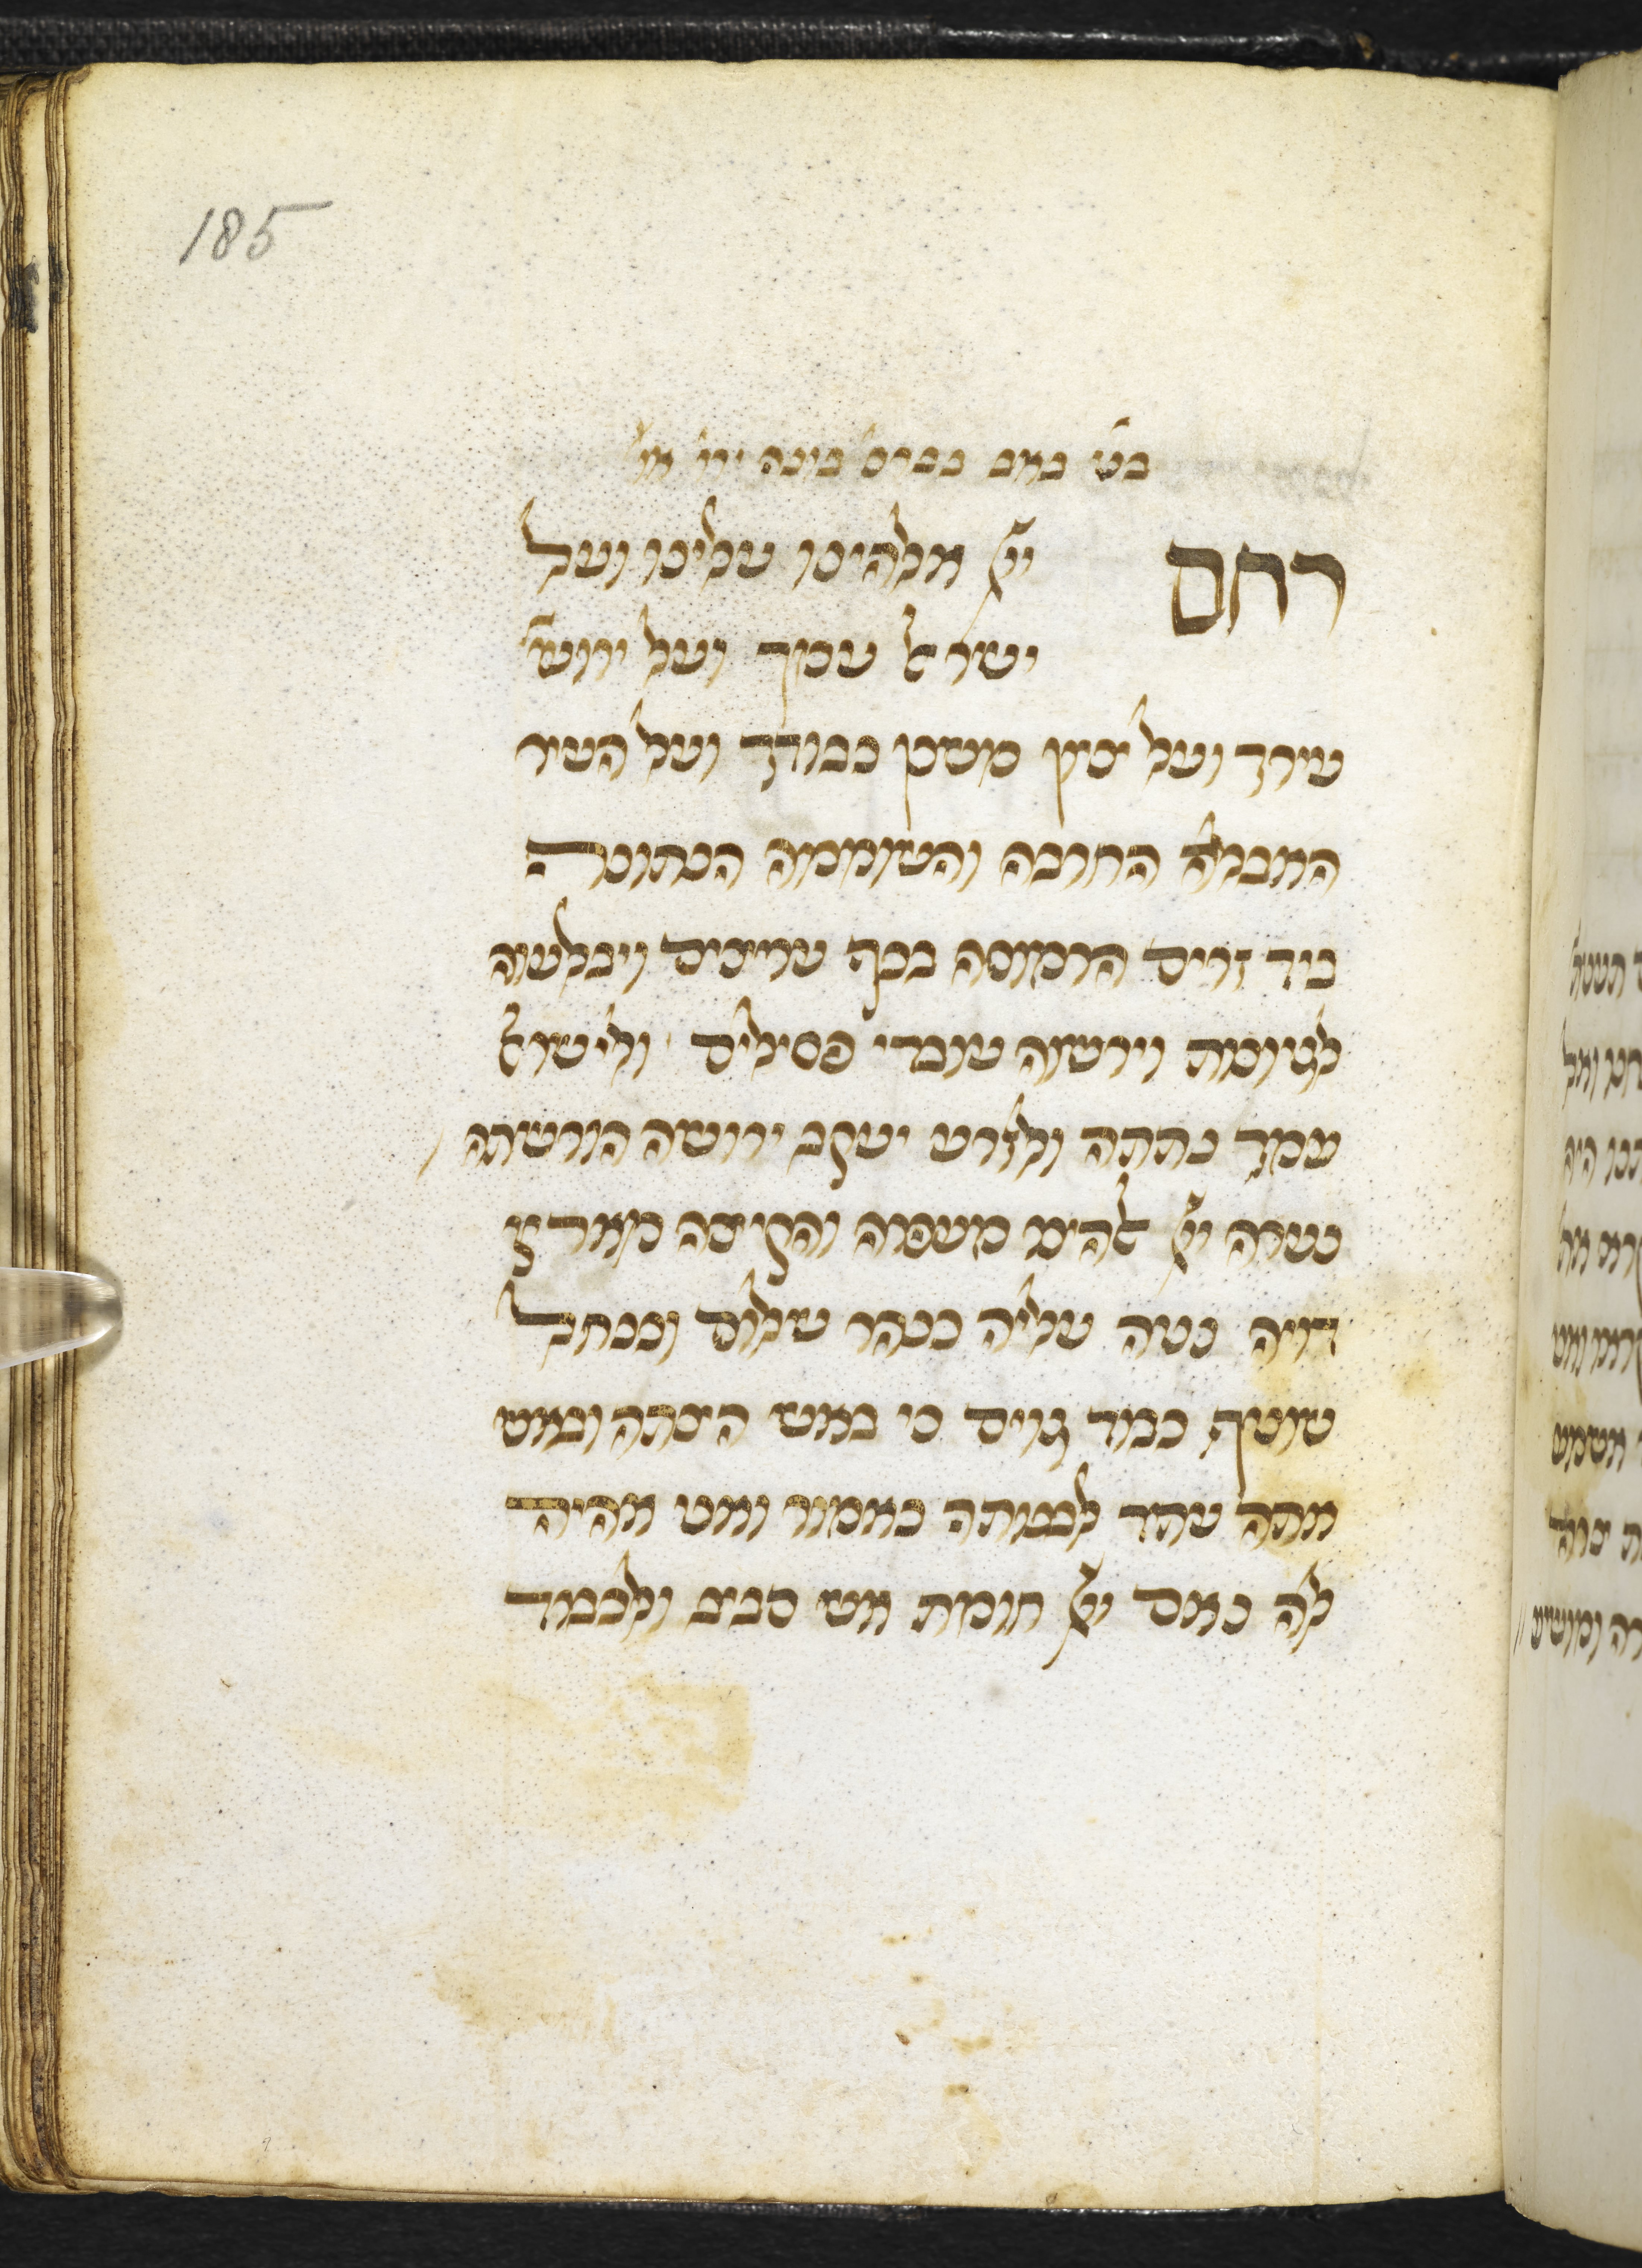 185
בט׳ באב בברכ׳ בונה ירו׳ או׳
רחם
יי׳ אלהינו עלינו ועל
ישראל עמך ועל ירוש׳
עירך ועל ציון משכן כבודך ועל העיר
האבלה החרבה והשוממה הנתונה
ביד זרים הרמוסה בכף עריצים ויבלעוה
לגיונות ויירשוה עובדי פסילים ולישראל
עמך נתתה ולזרע יעקב ירושה הורשתה
נערה יי׳ אלהינו מעפרה והקיצה מארץ
דויה נטה עליה כנהר שלום וכנחל
שוטף כבוד גוים כי באש היצתה ובאש
אתה עתיד לבנותה כאמור ואני אהיה
לה נאם יי׳ חומת אש סביב ולכבוד